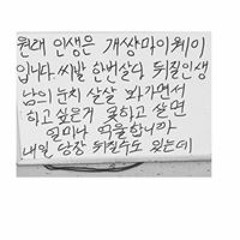 원래 인생은 개쌍마이웨이
입니다 씨발 한번살다 뒤질인생
남의 눈치 살살 봐가면서
하고 싶은거 못하고 살면
얼마나 억울합니까
내일 당장 뒤질수도 있는데